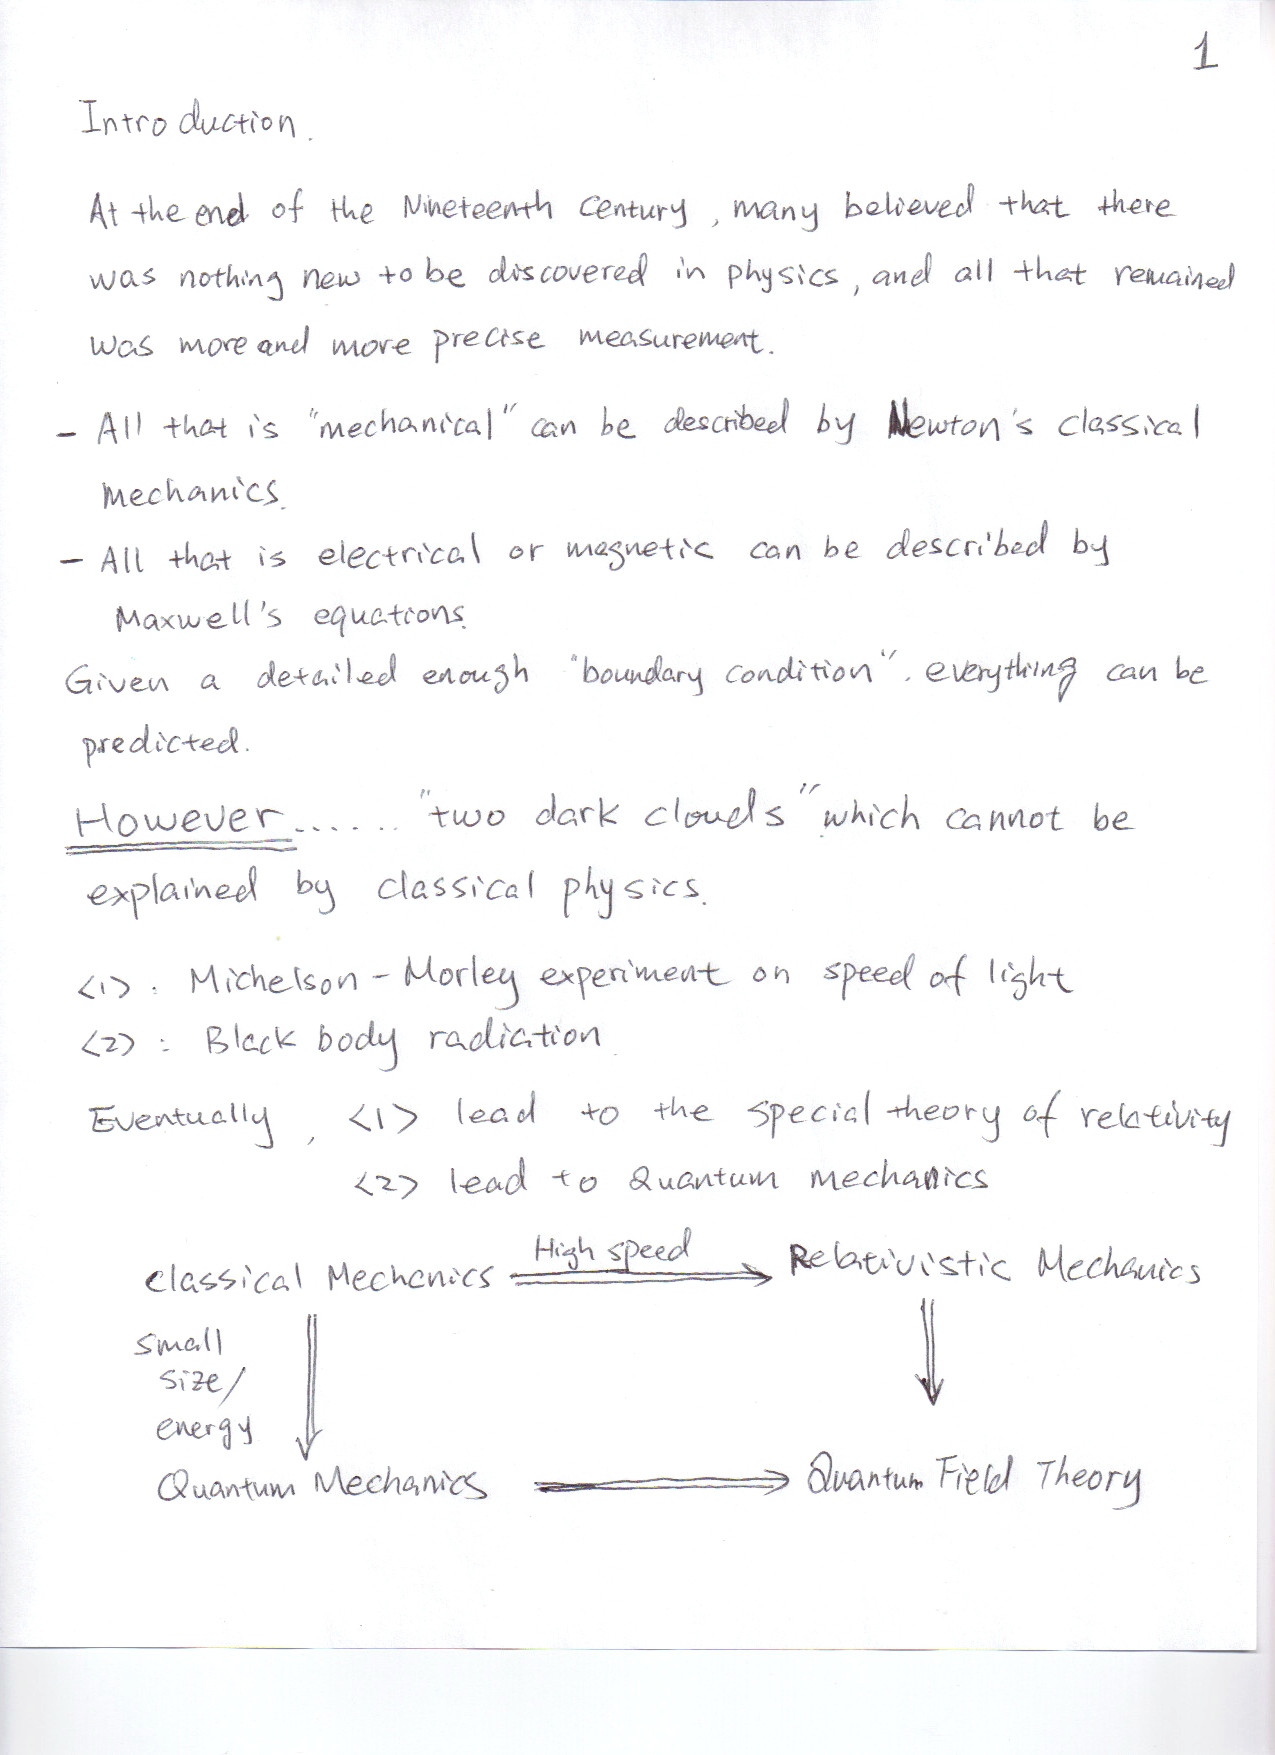 1
Introduction.
At the end of the Nineteenth Century, many believed that there
was nothing new to be discovered in physics, and all that remained
was more and more precise measurement.
- All that is "mechanical" can be described by Newton's classical
mechanics.
- All that is electrical or magnetic can be described by
Maxwell's equations.
Given a detailed enough "boundary condition". everything can be
predicted.
However...... "two dark clouds" which cannot be
explained by classical physics.
<1>: Michelson-Morley experiment on speed of light
<2>: Black body radiation
Eventually, <1> lead to the special theory of relativity
<2> lead to Quantum mechanics
High speed
Classical Mechanics ⇒ Relativistic Mechanics
small
size/
energy
Quantum Mechanics ⇒ Quantum Field Theory